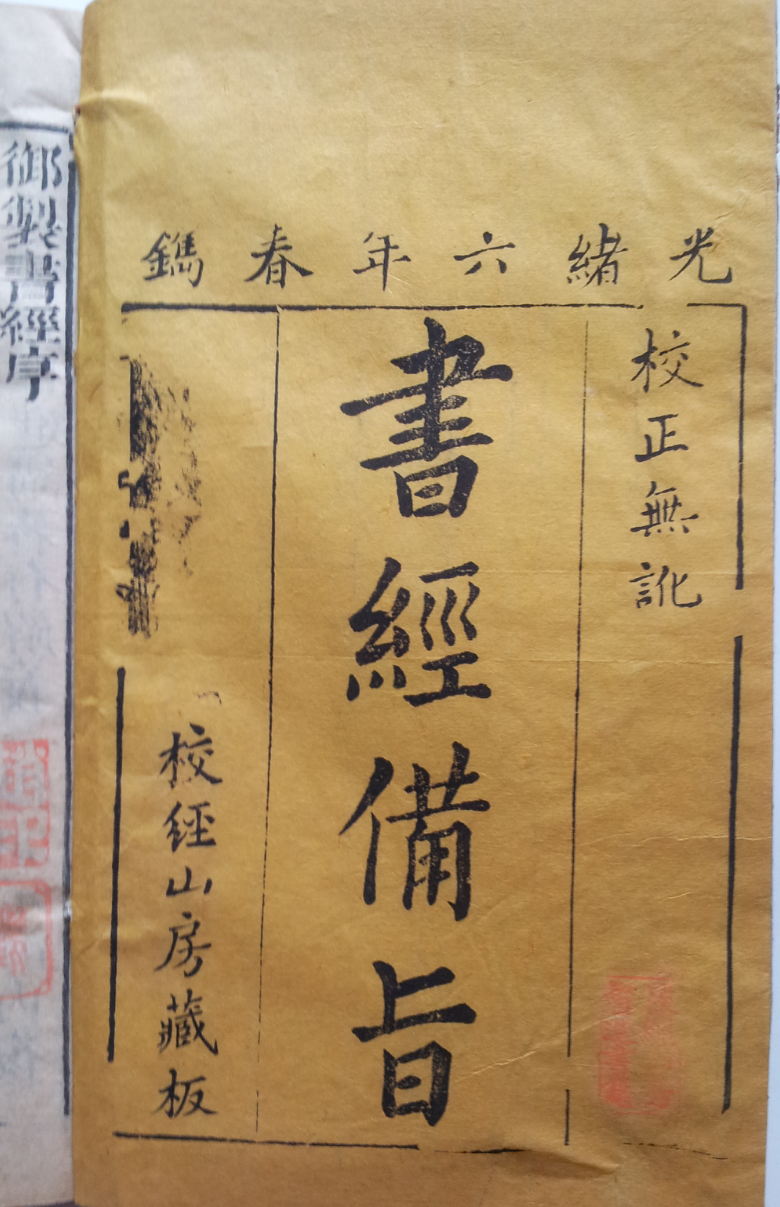 光緒六年春鐫
校正無訛
書經備旨
校經山房藏板
御製書經序